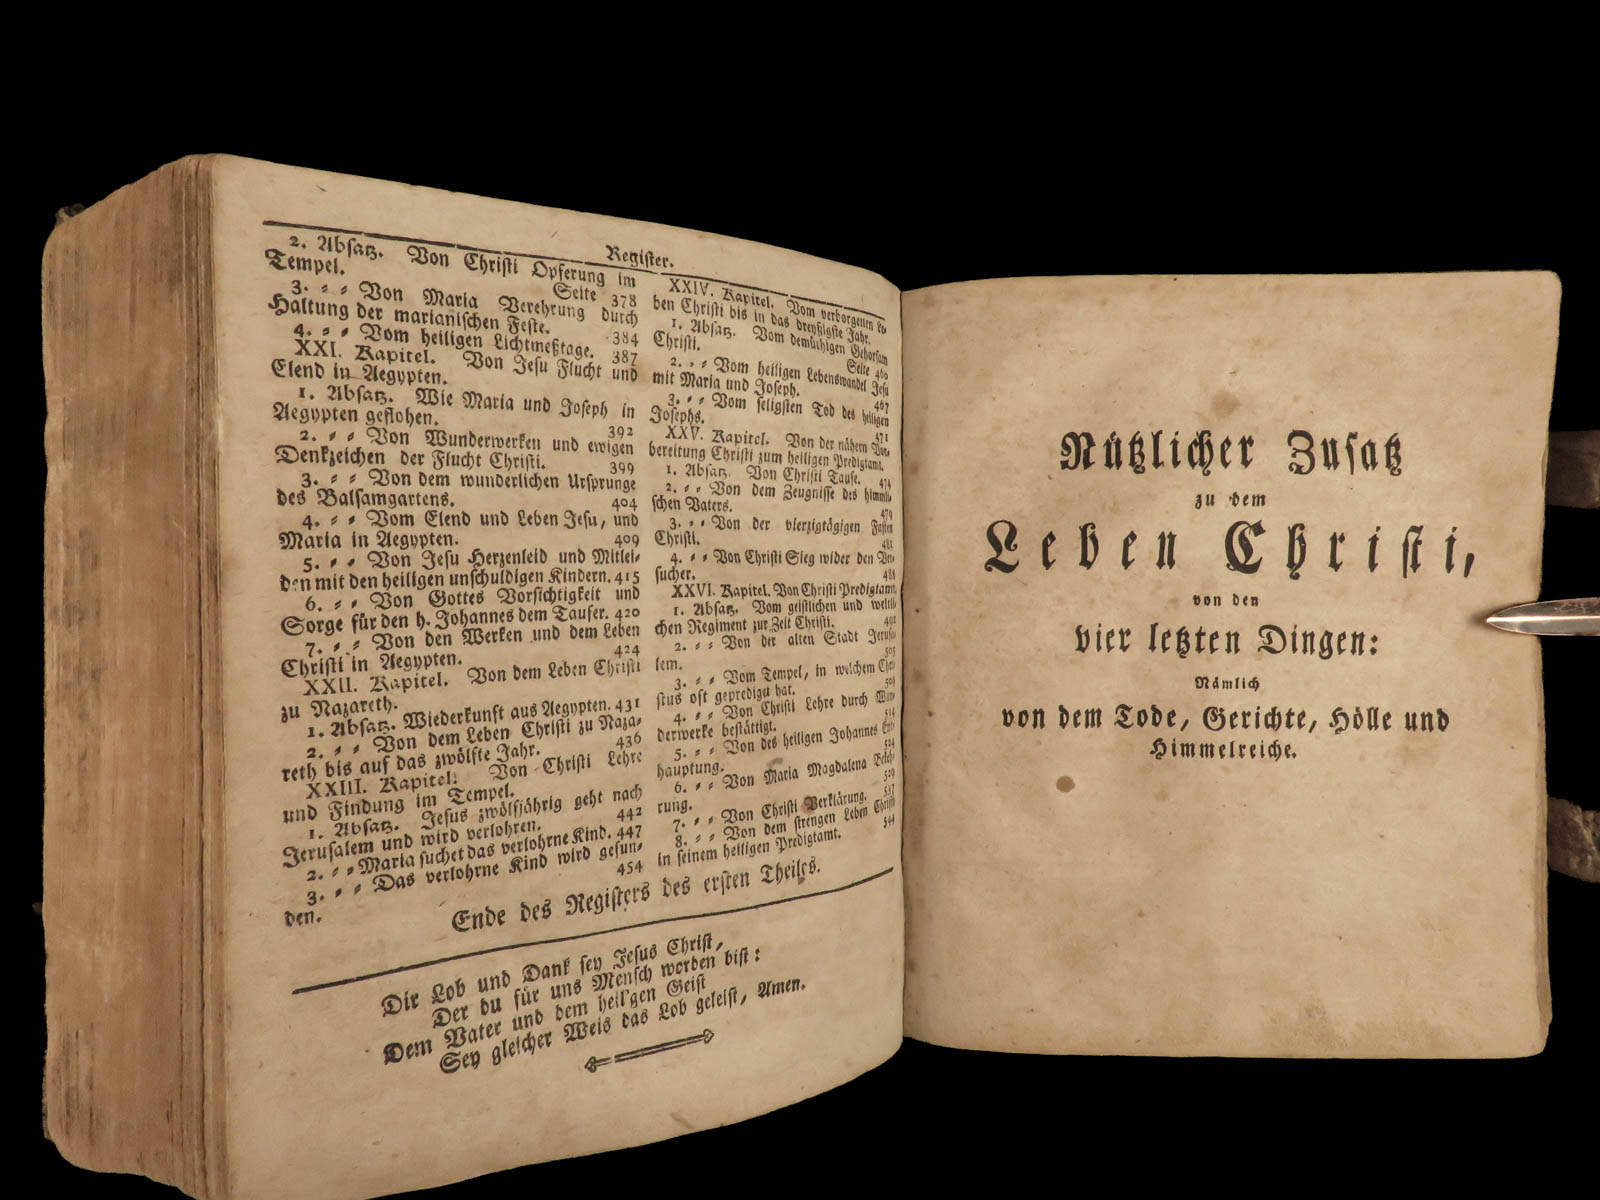 Register.
2. Absatz. Von Christi Opferung im
Tempel. Seite 378
3. ⸗ ⸗ Von Maria Verehrung durch
Haltung der marianischen Feste. 384
4. ⸗ ⸗ Vom heiligen Lichtmeßtage. 387
XXI. Kapitel. Von Jesu Flucht und
Elend in Aegypten.
1. Absatz. Wie Maria und Joseph in
Aegypten geflohen. 392
2. ⸗ ⸗ Von Wunderwerken und ewigen
Denkzeichen der Flucht Christi. 399
3. ⸗ ⸗ Von dem wunderlichen Ursprunge
des Balsamgartens. 404
4. ⸗ ⸗ Vom Elend und Leben Jesu, und
Maria in Aegypten. 409
5. ⸗ ⸗ Von Jesu Herzenleid und Mitlei⸗
den mit den heiligen unschuldigen Kindern. 415
6. ⸗ ⸗ Von Gottes Vorsichtigkeit und
Sorge für den h. Johannes dem Taufer. 420
7. ⸗ ⸗ Von den Werken und dem Leben
Christi in Aegypten. 424
XXII. Kapitel. Von dem Leben Christi
zu Nazareth.
1. Absatz. Wiederkunft aus Aegypten. 431
2. ⸗ ⸗ Von dem Leben Christi zu Naza⸗
reth bis auf das zwölfte Jahr. 436
XXIII. Kapitel. Von Christi Lehre
und Findung im Tempel.
1. Absatz. Jesus zwölfjährig geht nach
Jerusalem und wird verlohren. 442
2. ⸗ ⸗ Maria suchet das verlohrne Kind. 447
3. ⸗ ⸗ Das verlohrne Kind wird gefun⸗
den. 454
XXIV. Kapitel. Vom verborgenen Le⸗
ben Christi bis in das dreyßigste Jahr.
1. Absatz. Vom demüthigen Gehorsam
Christi. Seite 460
2. ⸗ ⸗ Vom heiligen Lebenswandel Jesu
mit Maria und Joseph. 467
3. ⸗ ⸗ Vom seligsten Tod des heiligen
Josephs. 471
XXV. Kapitel. Von der nähern Vor⸗
bereitung Christi zum heiligen Predigtamt.
1. Absatz. Von Christi Taufe. 474
2. ⸗ ⸗ Von dem Zeugnisse des himmli⸗
schen Vaters. 479
3. ⸗ ⸗ Von der vierzigtägigen Fasten
Christi. 481
4. ⸗ ⸗ Von Christi Sieg wider den Ver⸗
sucher. 488
XXVI. Kapitel. Von Christi Predigtamt.
1. Absatz. Vom geistlichen und weltli⸗
chen Regiment zur Zeit Christi. 492
2. ⸗ ⸗ Von der alten Stadt Jerusa⸗
lem. 505
3. ⸗ ⸗ Vom Tempel, in welchem Chri⸗
stus oft geprediget hat. 509
4. ⸗ ⸗ Von Christi Lehre durch Wun⸗
derwerke bestättigt. 514
5. ⸗ ⸗ Von des heiligen Johannes Ent⸗
hauptung. 524
6. ⸗ ⸗ Von Maria Magdalena Bekeh⸗
rung. 529
7. ⸗ ⸗ Von Christi Verklärung. 537
8. ⸗ ⸗ Von dem strengen Leben Christi
in seinem heiligen Predigtamt. 544
Ende des Registers des ersten Theiles.
Dir Lob und Dank sey Jesus Christ,
Der du für uns Mensch worden bist:
Dem Vater und dem heil'gen Geist
Sey gleicher Weis das Lob geleist, Amen.
Nützlicher Zusatz
zu dem
Leben Christi,
von den
vier letzten Dingen:
Nämlich
von dem Tode, Gerichte, Hölle und
Himmelreiche.